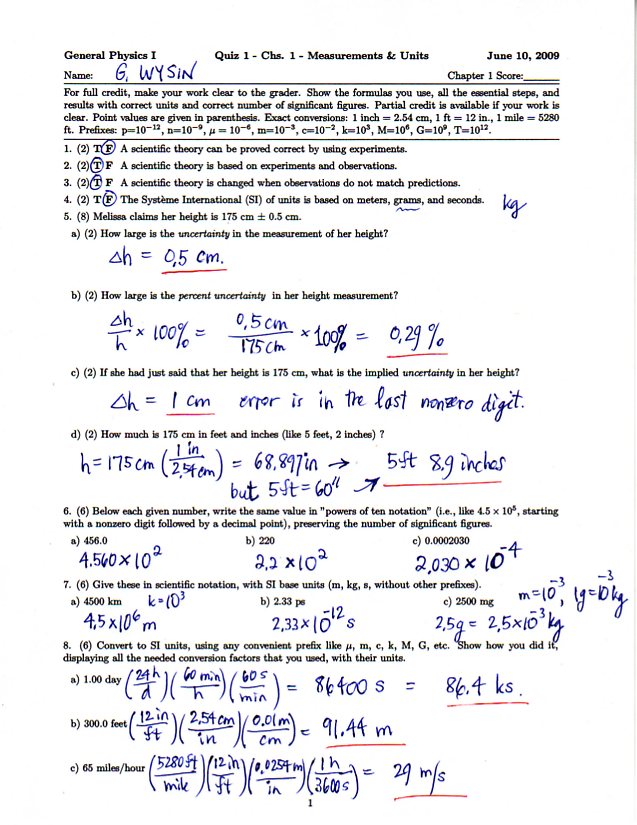 General Physics I Quiz 1 - Chs. 1 - Measurements & Units June 10, 2009
Name: G. WYSIN Chapter 1 Score:______
For full credit, make your work clear to the grader. Show the formulas you use, all the essential steps, and
results with correct units and correct number of significant figures. Partial credit is available if your work is
clear. Point values are given in parenthesis. Exact conversions: 1 inch = 2.54 cm, 1 ft = 12 in., 1 mile = 5280
ft. Prefixes: p=10⁻¹², n=10⁻⁹, μ = 10⁻⁶, m=10⁻³, c=10⁻², k=10³, M=10⁶, G=10⁹, T=10¹².
1. (2) T F A scientific theory can be proved correct by using experiments.
2. (2) T F A scientific theory is based on experiments and observations.
3. (2) T F A scientific theory is changed when observations do not match predictions.
4. (2) T F The Système International (SI) of units is based on meters, grams, and seconds. kg
5. (8) Melissa claims her height is 175 cm ± 0.5 cm.
a) (2) How large is the uncertainty in the measurement of her height?
Δh = 0,5 cm.
b) (2) How large is the percent uncertainty in her height measurement?
Δh/h × 100% = 0,5 cm/175 cm × 100% = 0,29 %
c) (2) If she had just said that her height is 175 cm, what is the implied uncertainty in her height?
Δh = 1 cm error is in the last nonzero digit.
d) (2) How much is 175 cm in feet and inches (like 5 feet, 2 inches) ?
h = 175 cm (1 in/2,54 cm) = 68,897 in → 5 ft 8,9 inches
but 5 ft = 60" ↗
6. (6) Below each given number, write the same value in "powers of ten notation" (i.e., like 4.5 × 10⁵, starting
with a nonzero digit followed by a decimal point), preserving the number of significant figures.
a) 456.0 b) 220 c) 0.0002030
4.560 × 10² 2,2 × 10² 2,030 × 10⁻⁴
7. (6) Give these in scientific notation, with SI base units (m, kg, s, without other prefixes). m=10⁻³, 1g=10⁻³kg
a) 4500 km k=10³ b) 2.33 ps c) 2500 mg
4,5 ×10⁶ m 2,33×10⁻¹² s 2,5g = 2,5×10⁻³ kg
8. (6) Convert to SI units, using any convenient prefix like μ, m, c, k, M, G, etc. Show how you did it,
displaying all the needed conversion factors that you used, with their units.
a) 1.00 day (24 h/d)(60 min/h)(60 s/min) = 86400 s = 86.4 ks.
b) 300.0 feet (12 in/ft)(2,54 cm/in)(0.01 m/cm) = 91.44 m
c) 65 miles/hour (5280 ft/mile)(12 in/ft)(0,0254 m/in)(1 h/3600 s) = 29 m/s
1